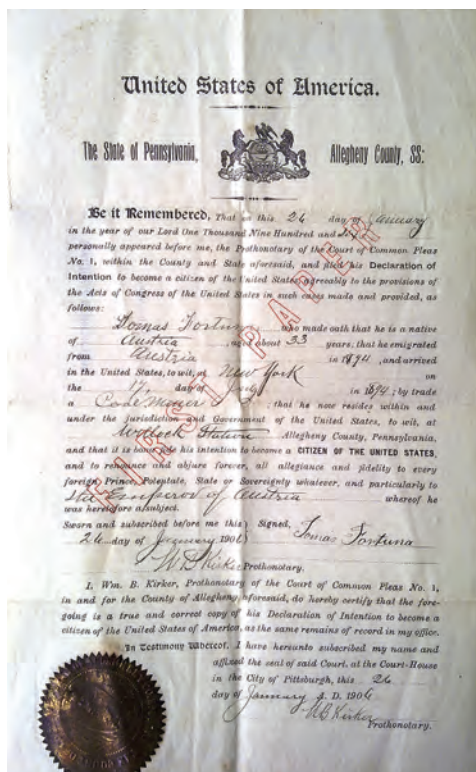 United States of America.
The State of Pennsylvania, Allegheny County, SS:
Be it Remembered, That on this 26 day of January
in the year of our Lord One Thousand Nine Hundred and Six
personally appeared before me, the Prothonotary of the Court of Common Pleas
No. 1, within the County and State aforesaid, and filed his Declaration of
Intention to become a citizen of the United States, agreeably to the provisions
of the Acts of Congress of the United States in such cases made and provided, as
follows:
Tomas Fortuna who made oath that he is a native
of Austria, aged about 33 years, that he emigrated
from Austria in 1894, and arrived
in the United States, to wit, at New York on
the day of July in 1894; by trade
a Coal Miner; that he now resides within and
under the jurisdiction and Government of the United States, to wit, at
Station Allegheny County, Pennsylvania,
and that it is bona fide his intention to become a CITIZEN OF THE UNITED STATES,
and to renounce and abjure forever, all allegiance and fidelity to every
foreign Prince, Potentate, State or Sovereignty whatever, and particularly to
the Emperor of Austria whereof he
was heretofore a subject.
Sworn and subscribed before me this) Signed, Tomas Fortuna
26 day of January 1906)
W B Kirker Prothonotary.
I, Wm. B. Kirker, Prothonotary of the Court of Common Pleas No. 1,
in and for the County of Allegheny, aforesaid, do hereby certify that the fore-
going is a true and correct copy of his Declaration of Intention to become a
citizen of the United States of America, as the same remains of record in my office.
In Testimony Whereof, I have hereunto subscribed my name and
affixed the seal of said Court, at the Court-House
in the City of Pittsburgh, this 26
day of January A. D. 1906
W B Kirker
Prothonotary.
FIRST PAPER